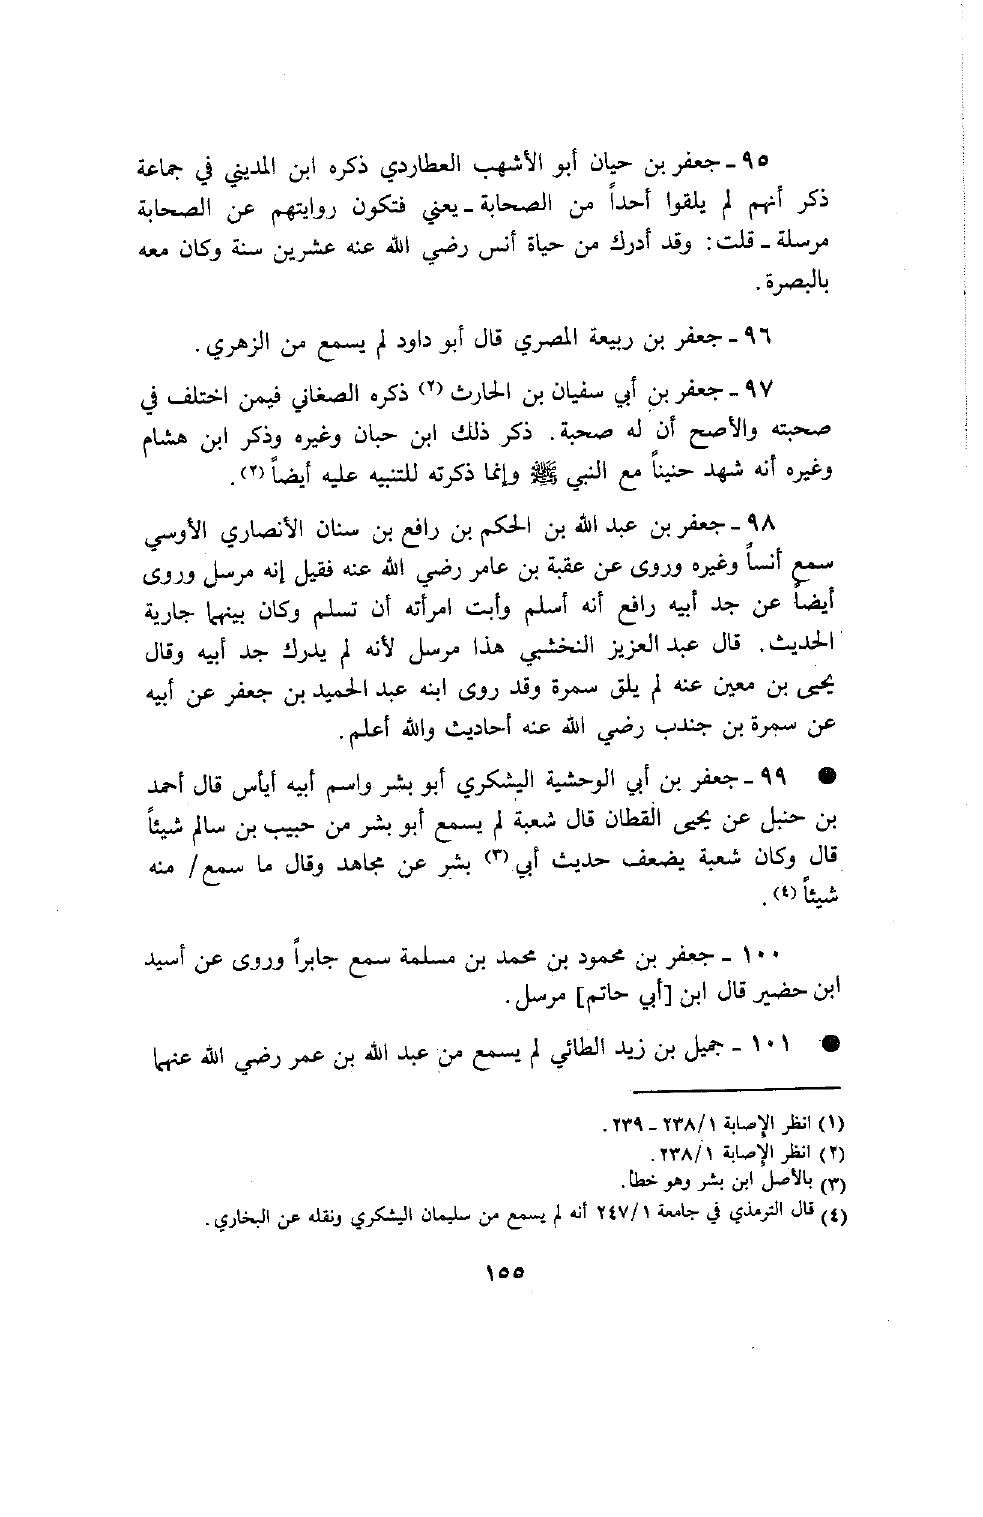 ٩٥ ـ جعفر بن حيان أبو الأشهب العطاردي ذكره ابن المديني في جماعة
ذكر أنهم لم يلقوا أحداً من الصحابة ـ يعني فتكون روايتهم عن الصحابة
مرسلة ـ قلت: وقد أدرك من حياة أنس رضي الله عنه عشرين سنة وكان معه
بالبصرة.
٩٦ ـ جعفر بن ربيعة المصري قال أبو داود لم يسمع من الزهري.
٩٧ ـ جعفر بن أبي سفيان بن الحارث (٢) ذكره الصغاني فيمن اختلف في
صحبته والأصح أن له صحبة. ذكر ذلك ابن حبان وغيره وذكر ابن هشام
وغيره أنه شهد حنيناً مع النبي ﷺ وإنما ذكرته للتنبيه عليه أيضاً (٢).
٩٨ ـ جعفر بن عبد الله بن الحكم بن رافع بن سنان الأنصاري الأوسي
سمع أنساً وغيره وروى عن عقبة بن عامر رضي الله عنه فقيل إنه مرسل وروى
أيضاً عن جد أبيه رافع أنه أسلم وأبت امرأته أن تسلم وكان بينهما جارية
الحديث. قال عبد العزيز النخشبي هذا مرسل لأنه لم يدرك جد أبيه وقال
يحيى بن معين عنه لم يلق سمرة وقد روى ابنه عبد الحميد بن جعفر عن أبيه
عن سمرة بن جندب رضي الله عنه أحاديث والله أعلم.
● ٩٩ ـ جعفر بن أبي الوحشية اليشكري أبو بشر واسم أبيه أياس قال أحمد
بن حنبل عن يحيى القطان قال شعبة لم يسمع أبو بشر من حبيب بن سالم شيئاً
قال وكان شعبة يضعف حديث أبي (٣) بشر عن مجاهد وقال ما سمع / منه
شيئاً (٤).
١٠٠ ـ جعفر بن محمود بن محمد بن مسلمة سمع جابراً وروى عن أسيد
ابن حضير قال ابن [أبي حاتم] مرسل.
● ١٠١ ـ جميل بن زيد الطائي لم يسمع من عبد الله بن عمر رضي الله عنهما
(١) انظر الإصابة ٢٣٨/١ ـ ٢٣٩.
(٢) انظر الإصابة ٢٣٨/١.
(٣) بالأصل ابن بشر وهو خطأ.
(٤) قال الترمذي في جامعة ٢٤٧/١ أنه لم يسمع من سليمان اليشكري ونقله عن البخاري.
١٥٥